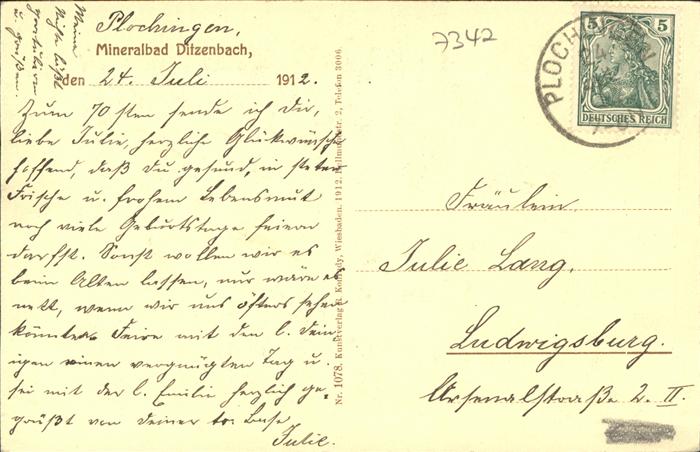 Meine
Nichte läßt
gratulieren
u. grüßen.
Plochingen,
Mineralbad Ditzenbach,
den 24. Juli 1912.
Zum 70sten sende ich dir,
liebe Julie, herzliche Glückwünsche
hoffend, daß du gesund, in steter
Frische u. frohem Lebensmut
noch viele Geburtstage feiern
darfst. Sonst wollen wir es
beim Alten lassen, nur wäre es
nett, wenn wir uns öfters sehen
könnten. Feire mit den l. Dein-
igen einen vergnügten Tag u.
sei mit der l. Emilie herzlich ge-
grüßt von deiner tr. Base
Julie.
Nr. 1078. Kunstverlag Wiesbaden. 1912. 2, Telefon 3006
7342
PLOCHINGEN
5 5
DEUTSCHES REICH
Fräulein
Julie Lang.
Ludwigsburg.
Arsenalstraße 2. II.